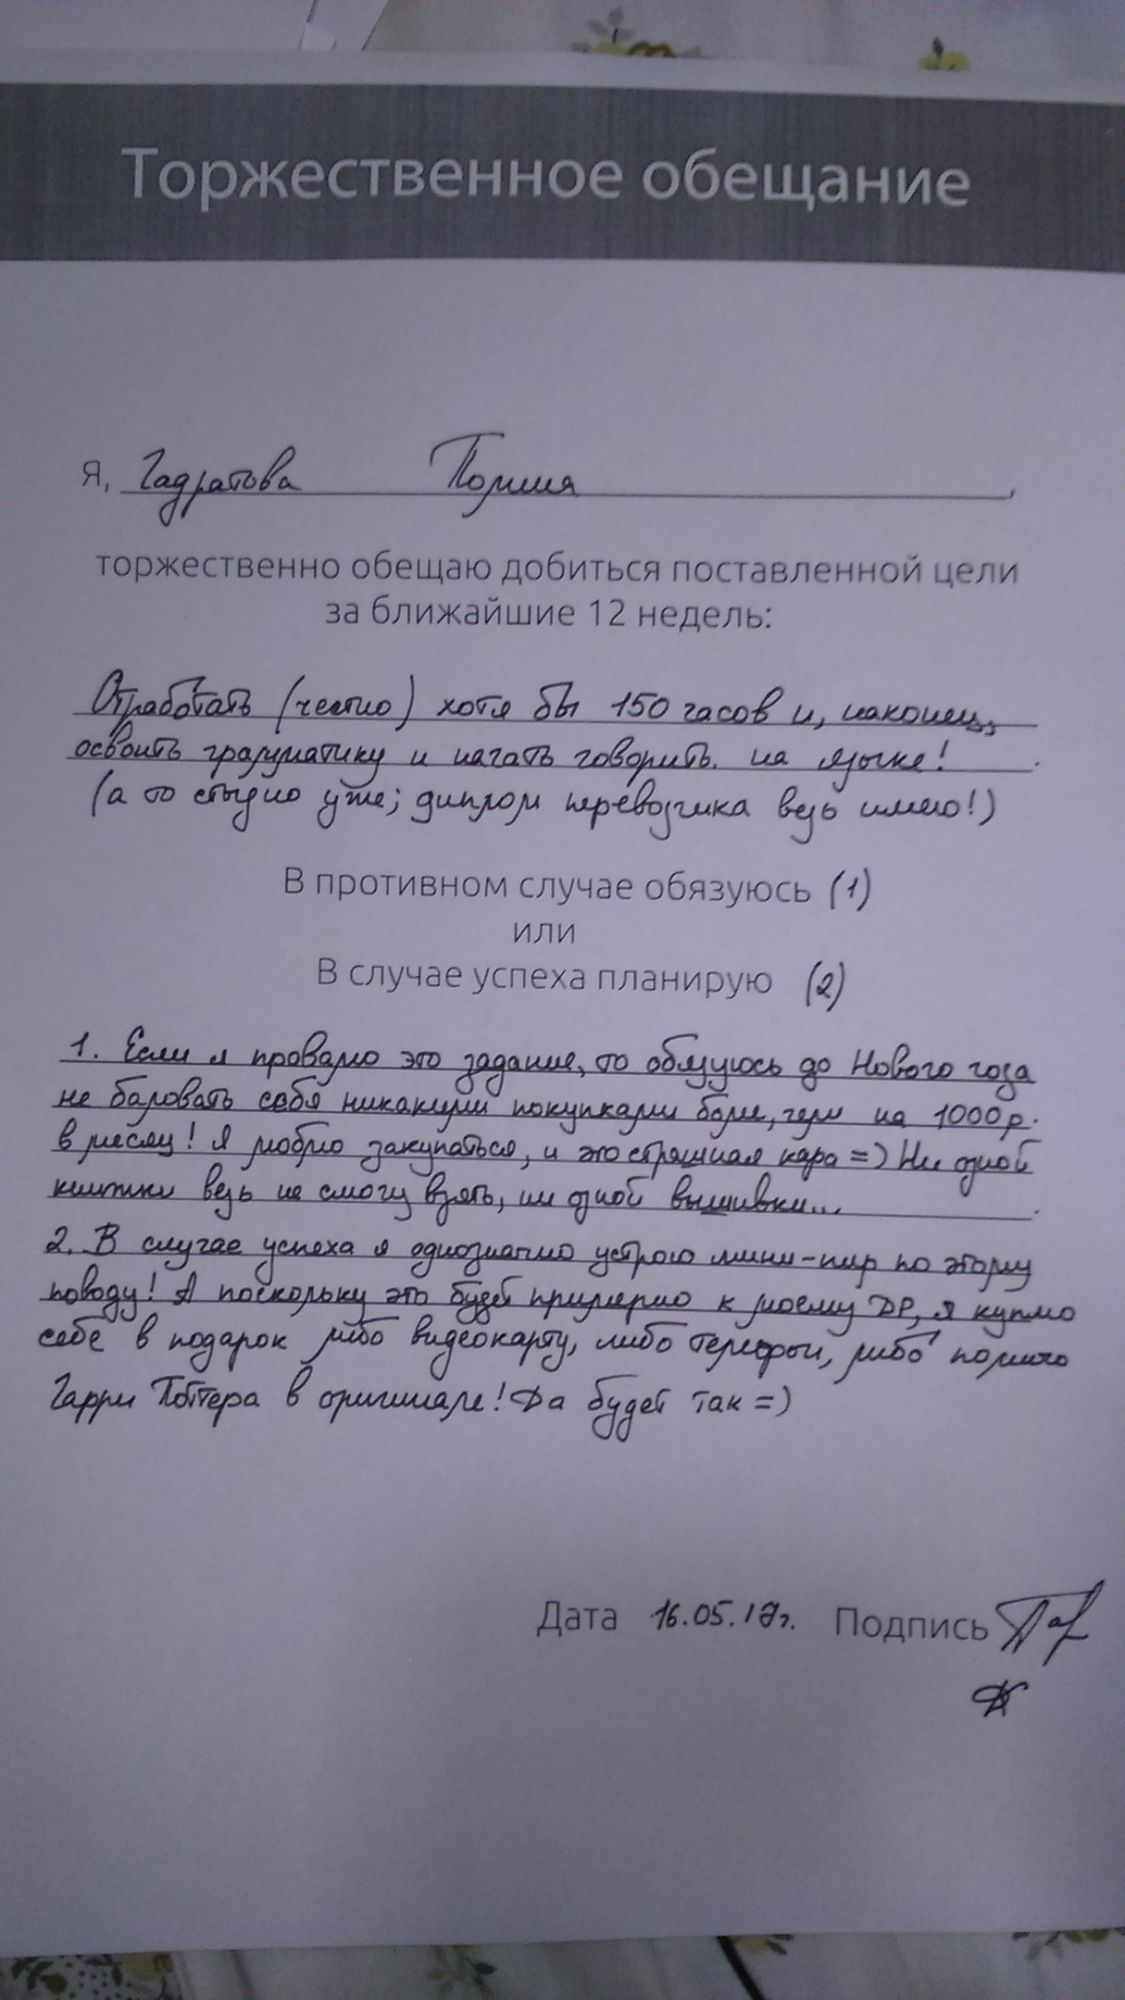 Торжественное обещание
Я, Гадратова Полина,
торжественно обещаю добиться поставленной цели
за ближайшие 12 недель:
Отработать (честно) хотя бы 150 часов и, наконец,
освоить грамматику и начать говорить на языке!
(а то стыдно уже; диплом переводчика ведь имею!)
В противном случае обязуюсь (1)
или
В случае успеха планирую (2)
1. Если я провалю это задание, то обязуюсь до Нового года
не баловать себя никакими покупками более, чем на 1000 р.
в месяц! Я люблю закупаться, и это страшная кара =) Ни одной
книжки ведь не смогу взять, ни одной вышивки...
2. В случае успеха я однозначно устрою мини-пир по этому
поводу! А поскольку это будет примерно к моему ДР, я куплю
себе в подарок либо видеокарту, либо телефон, либо полного
Гарри Поттера в оригинале! Да будет так =)
Дата 16.05.18г. Подпись